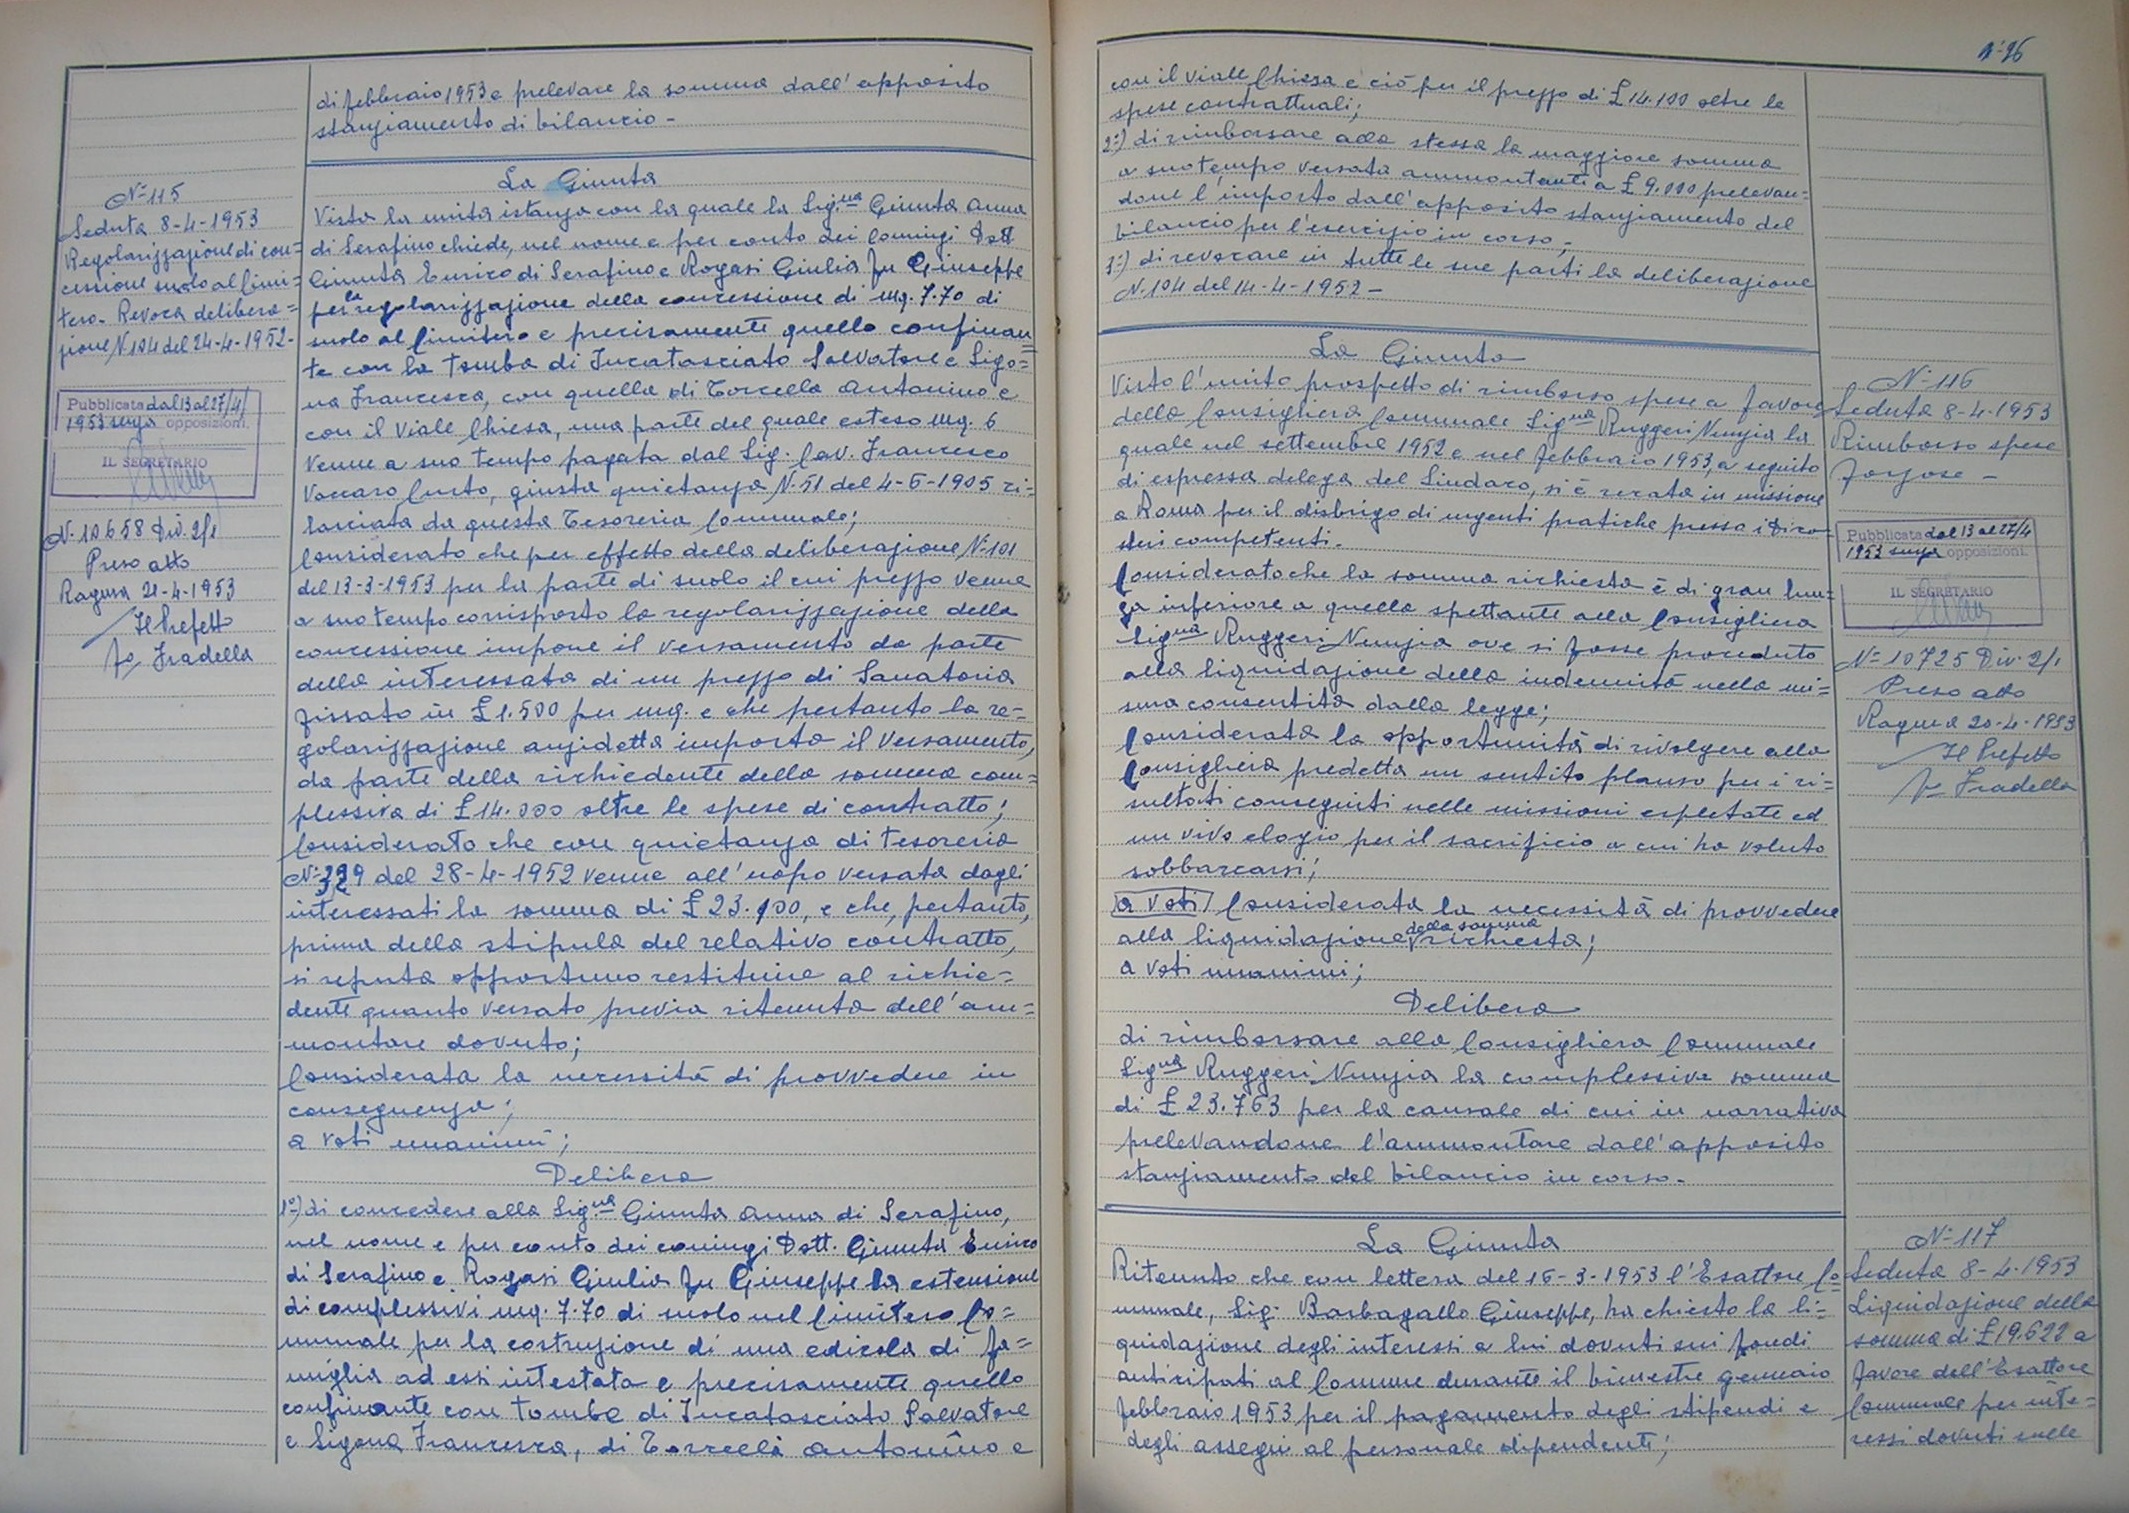 di febbraio 1953 e prelevare la somma dall'apposito
stanziamento di bilancio -
N. 115
Seduta 8-4-1953
Regolarizzazione di con=
cessione suolo al Cimi=
tero. Revoca delibera=
zione N. 104 del 24-4-1952-
Pubblicata dal 13 al 27/4/
1953 senza opposizioni.
IL SEGRETARIO
N. 10658 Div. 2/1
Preso atto
Ragusa 21-4-1953
Il Prefetto
Fo Fradella
La Giunta
Vista la unita istanza con la quale la Sig.na Giunta Anna
di Serafino chiede, nel nome e per conto dei Coniugi Dott
Giunta Enrico di Serafino e Rogasi Giulia fu Giuseppe
per la regolarizzazione della concessione di mq. 7.70 di
suolo al Cimitero e precisamente quello confinan=
te con la tomba di Incatasciato Salvatore e Ligo=
na Francesca, con quella di Torcella Antonino e
con il Viale Chiesa, una parte del quale esteso mq. 6
venne a suo tempo pagata dal Sig. Cav. Francesco
Vaccaro Curto, giusta quietanza N. 51 del 4-6-1905 ri=
lasciata da questa Tesoreria Comunale;
Considerato che per effetto della deliberazione N. 101
del 13-3-1953 per la parte di suolo il cui prezzo venne
a suo tempo corrisposto la regolarizzazione della
concessione impone il versamento da parte
della interessata di un prezzo di Sanatoria
fissato in £ 1.500 per mq. e che pertanto la re=
golarizzazione anzidetta importa il versamento,
da parte della richiedente della somma com=
plessiva di £ 14.000 oltre le spese di contratto;
Considerato che con quietanza di tesoreria
N. 329 del 28-4-1952 venne all'uopo versata dagli
interessati la somma di £ 23.100, e che, pertanto,
prima della stipula del relativo contratto,
si reputa opportuno restituire al richie=
dente quanto versato previa ritenuta dell'am=
montare dovuto;
Considerata la necessità di provvedere in
conseguenza;
a voti unanimi;
Delibera
1°) di concedere alla Sig.na Giunta Anna di Serafino,
nel nome e per conto dei coniugi Dott. Giunta Enrico
di Serafino e Rogasi Giulia fu Giuseppe la estensione
di complessivi mq. 7.70 di suolo nel Cimitero Co=
munale per la costruzione di una edicola di fa=
miglia ad essi intestata e precisamente quello
confinante con tombe di Incatasciato Salvatore
e Ligona Francesca, di Torcella Antonino e
con il viale Chiesa e ciò per il prezzo di £ 14.100 oltre le
spese contrattuali;
2°) di rimborsare alla stessa la maggiore somma
a suo tempo versata ammontante a £ 9.000 prelevan=
done l'importo dall'apposito stanziamento del
bilancio per l'esercizio in corso;
3°) di revocare in tutte le sue parti la deliberazione
N. 104 del 14-4-1952 -
La Giunta
Visto l'unito prospetto di rimborso spese a favore
della Consigliera Comunale Sig.na Ruggeri Nunzia la
quale nel settembre 1952 e nel febbraio 1953, a seguito
di espressa delega del Sindaco, si è recata in missione
a Roma per il disbrigo di urgenti pratiche presso i Dica=
steri competenti.
Considerato che la somma richiesta è di gran lun=
ga inferiore a quella spettante alla Consigliera
Sig.na Ruggeri Nunzia ove si fosse proceduto
alla liquidazione della indennità nella mi=
sura consentita dalla legge;
Considerata la opportunità di rivolgere alla
Consigliera predetta un sentito plauso per i ri=
sultati conseguiti nelle missioni espletate ed
un vivo elogio per il sacrificio a cui ha voluto
sobbarcarsi;
a voti Considerata la necessità di provvedere
alla liquidazione della somma richiesta;
a voti unanimi;
Delibera
di rimborsare alla Consigliera Comunale
Sig.na Ruggeri Nunzia la complessiva somma
di £ 23.763 per la causale di cui in narrativa
prelevandone l'ammontare dall'apposito
stanziamento del bilancio in corso.
N. 116
Seduta 8-4-1953
Rimborso spese
forzose -
Pubblicata dal 13 al 27/4
1953 senza opposizioni.
IL SEGRETARIO
N. 10725 Div. 2/1
Preso atto
Ragusa 20-4-1953
Il Prefetto
Fo Fradella
La Giunta
Ritenuto che con lettera del 16-3-1953 l'Esattore Co=
munale, Sig. Barbagallo Giuseppe, ha chiesto la li=
quidazione degli interessi a lui dovuti sui fondi
anticipati al Comune durante il bimestre gennaio
febbraio 1953 per il pagamento degli stipendi e
degli assegni al personale dipendente;
N. 117
Seduta 8-4-1953
Liquidazione della
somma di £ 19.622 a
favore dell'Esattore
Comunale per inte=
ressi dovuti sulle